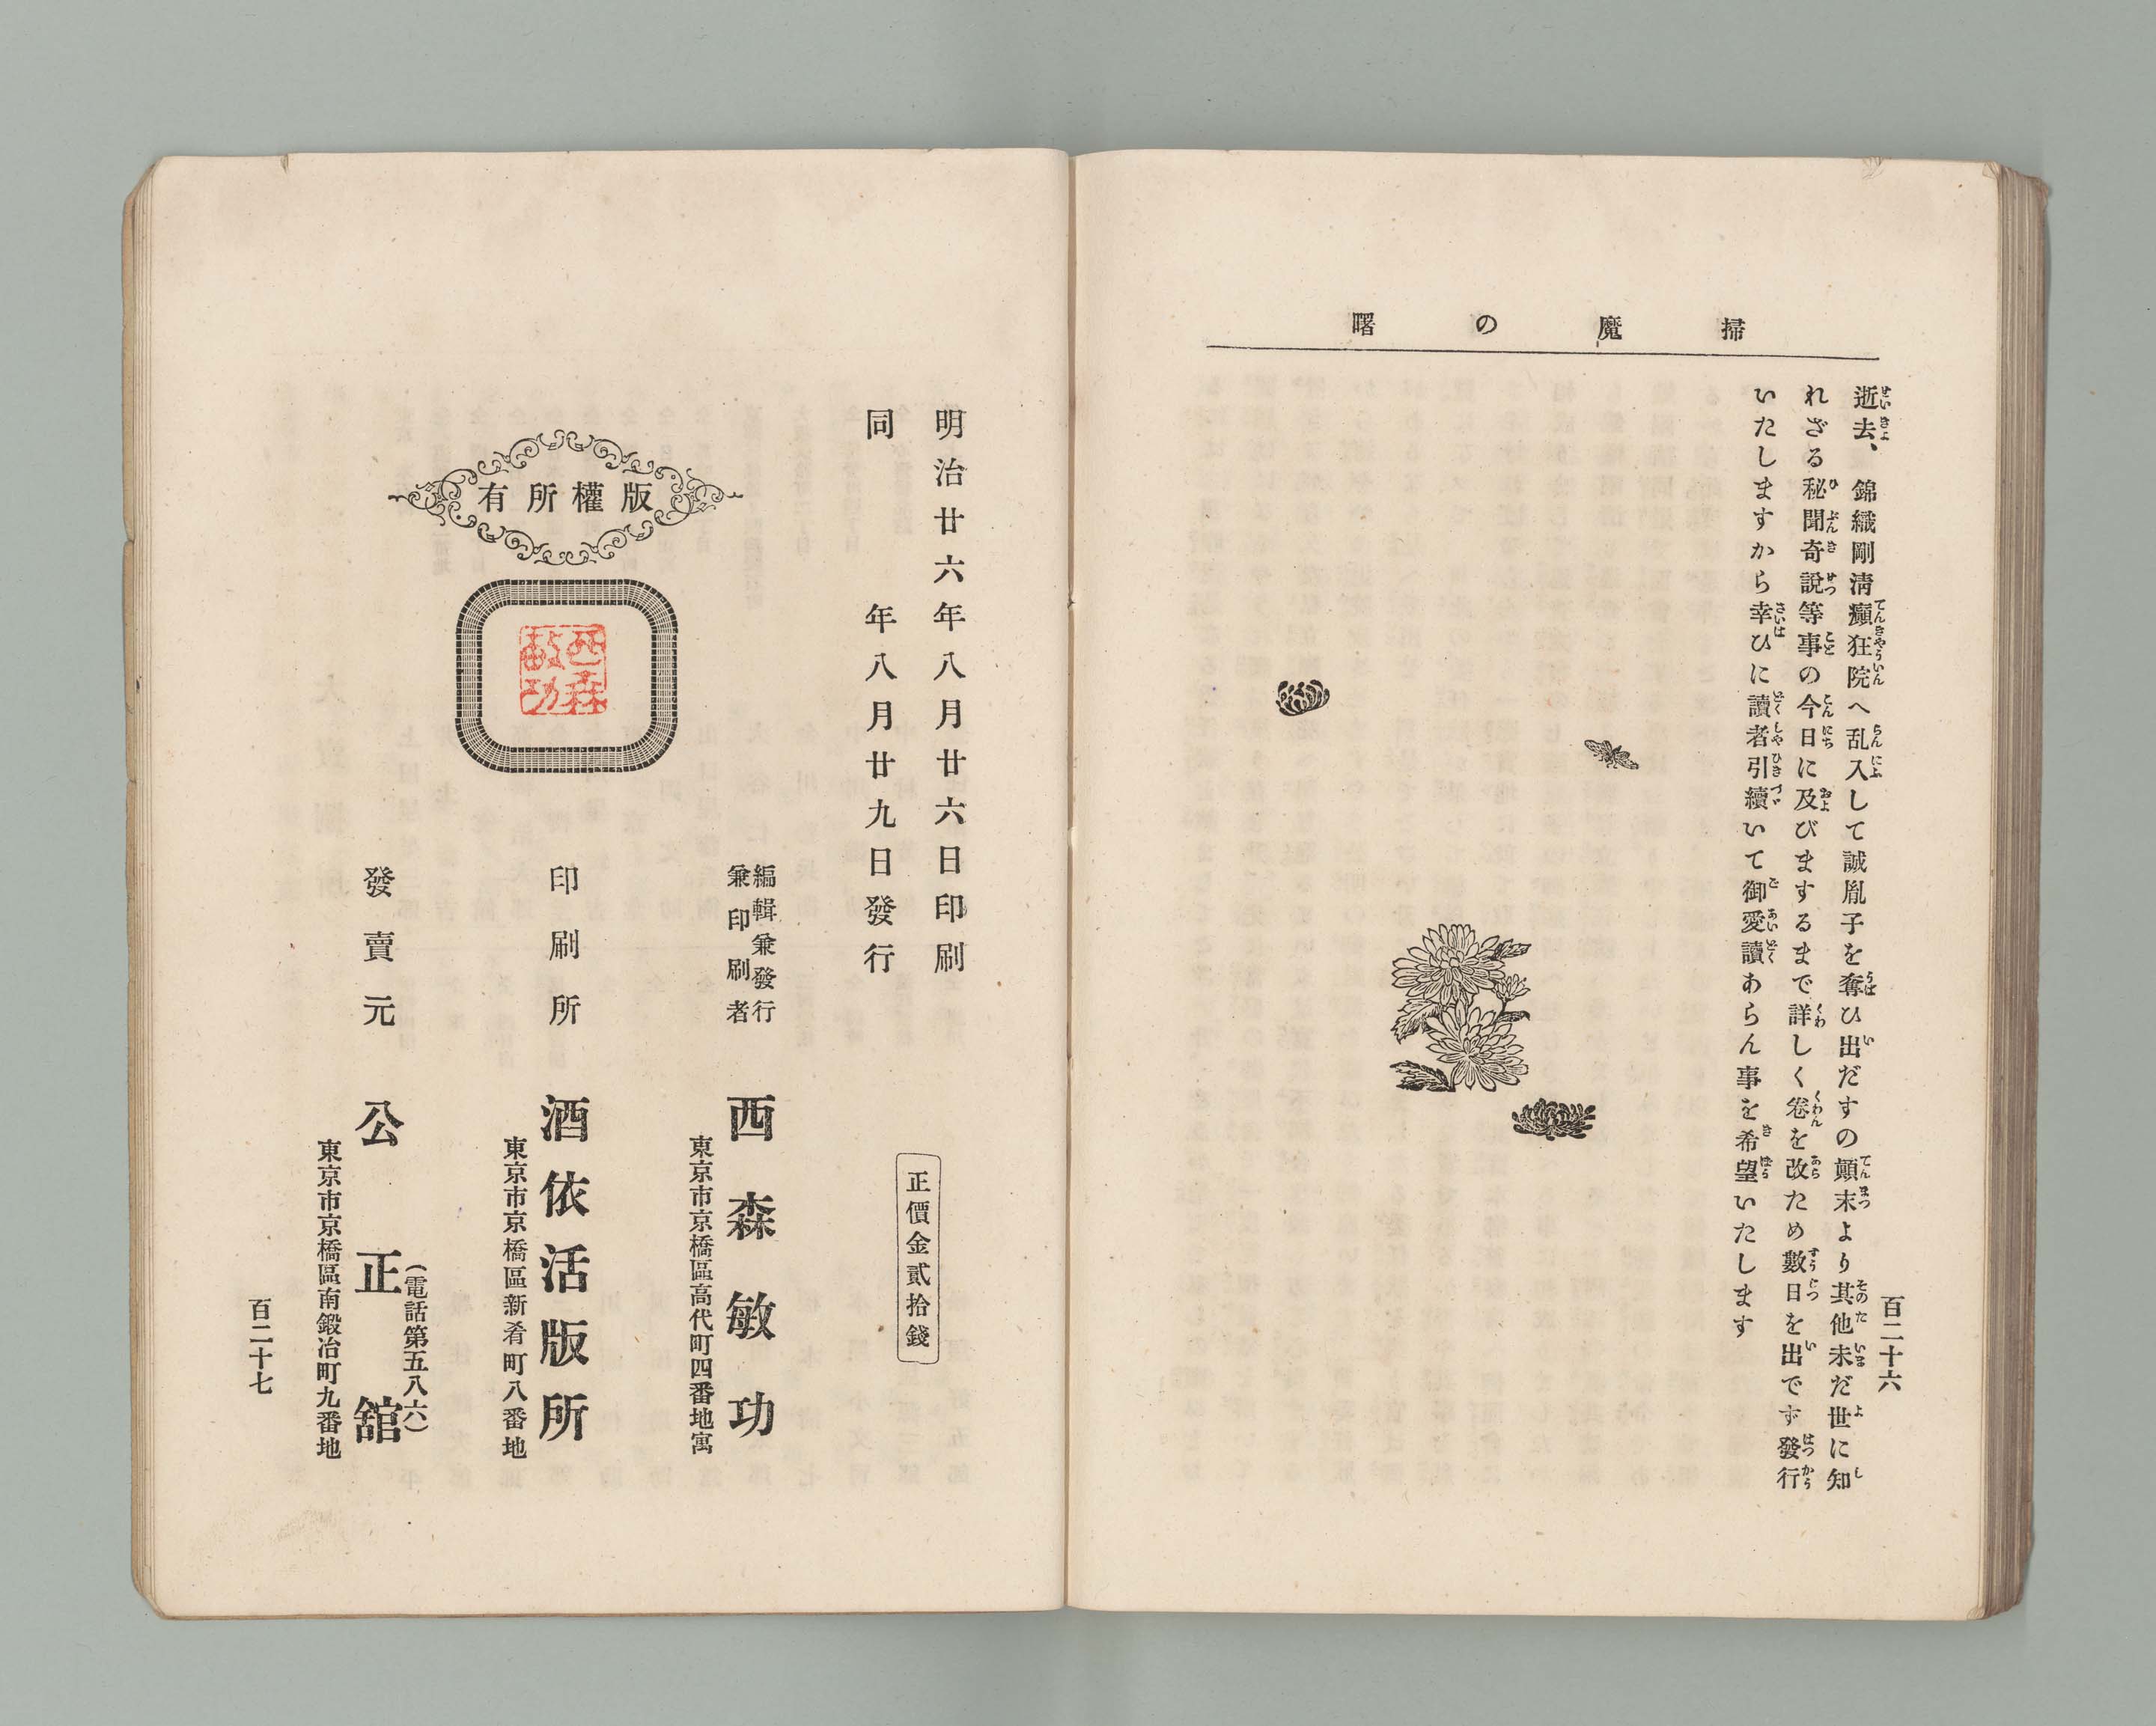 掃魔の曙
逝去、錦織剛淸癲狂院へ乱入して誠胤子を奪ひ出だすの顚末より其他未だ世に知
れざる秘聞奇說等事の今日に及びまするまで詳しく卷を改ため數日を出でず發行
いたしますから幸ひに讀者引續いて御愛讀あらん事を希望いたします
百二十六
明治廿六年八月廿六日印刷
同年八月廿九日發行
正價金貳拾錢
版權所有
西森敏功
編輯兼發行
兼印刷者
西森敏功
東京市京橋區高代町四番地寓
印刷所
酒依活版所
東京市京橋區新肴町八番地
發賣元
(電話第五八六)
公正舘
東京市京橋區南鍛冶町九番地
百二十七